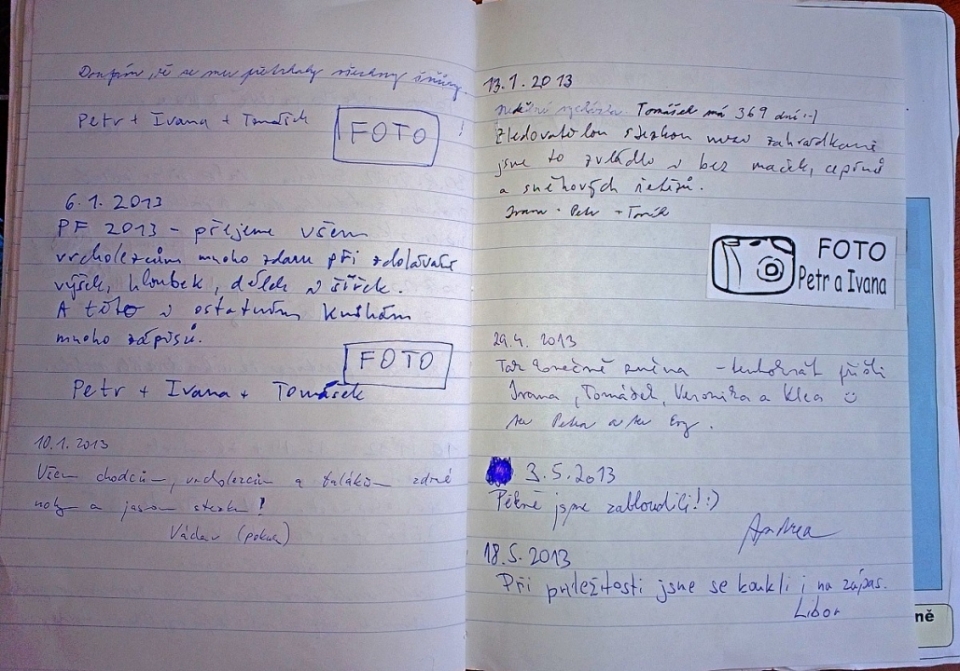 se mu všechny
Petr + Ivana + Tomášek
FOTO
!
6.1. 2013
PF 2013 - přejeme všem
vrcholezcům mnoho zdaru při zdolávání
výšek, hloubek, délek i šířek.
A této i ostatním knihám
mnoho zápisů.
FOTO
Petr + Ivana + Tomášek
10.1.2013
Všem chodcům, vrcholezcům a zdravé
nohy a jasnou stezku!
Václav
13.1.2013
Nedělní vycházka. Tomášek má 369 dní :-)
Zledovatělou stezkou mezi zahrádkami
jsme to zvládli i bez maček, cepínů
a sněhových řetězů.
Ivana + Petr + Tomík
FOTO
Petr a Ivana
29.4. 2013
Tak konečně změna - tentokrát přišli
Ivana, Tomášek, Veronika a Klea ☺
3.5.2013
Pěkně jsme zabloudili! :)
Andrea
18.5.2013
Při príležitosti jsme se koukli i na zápas.
Libor
ně